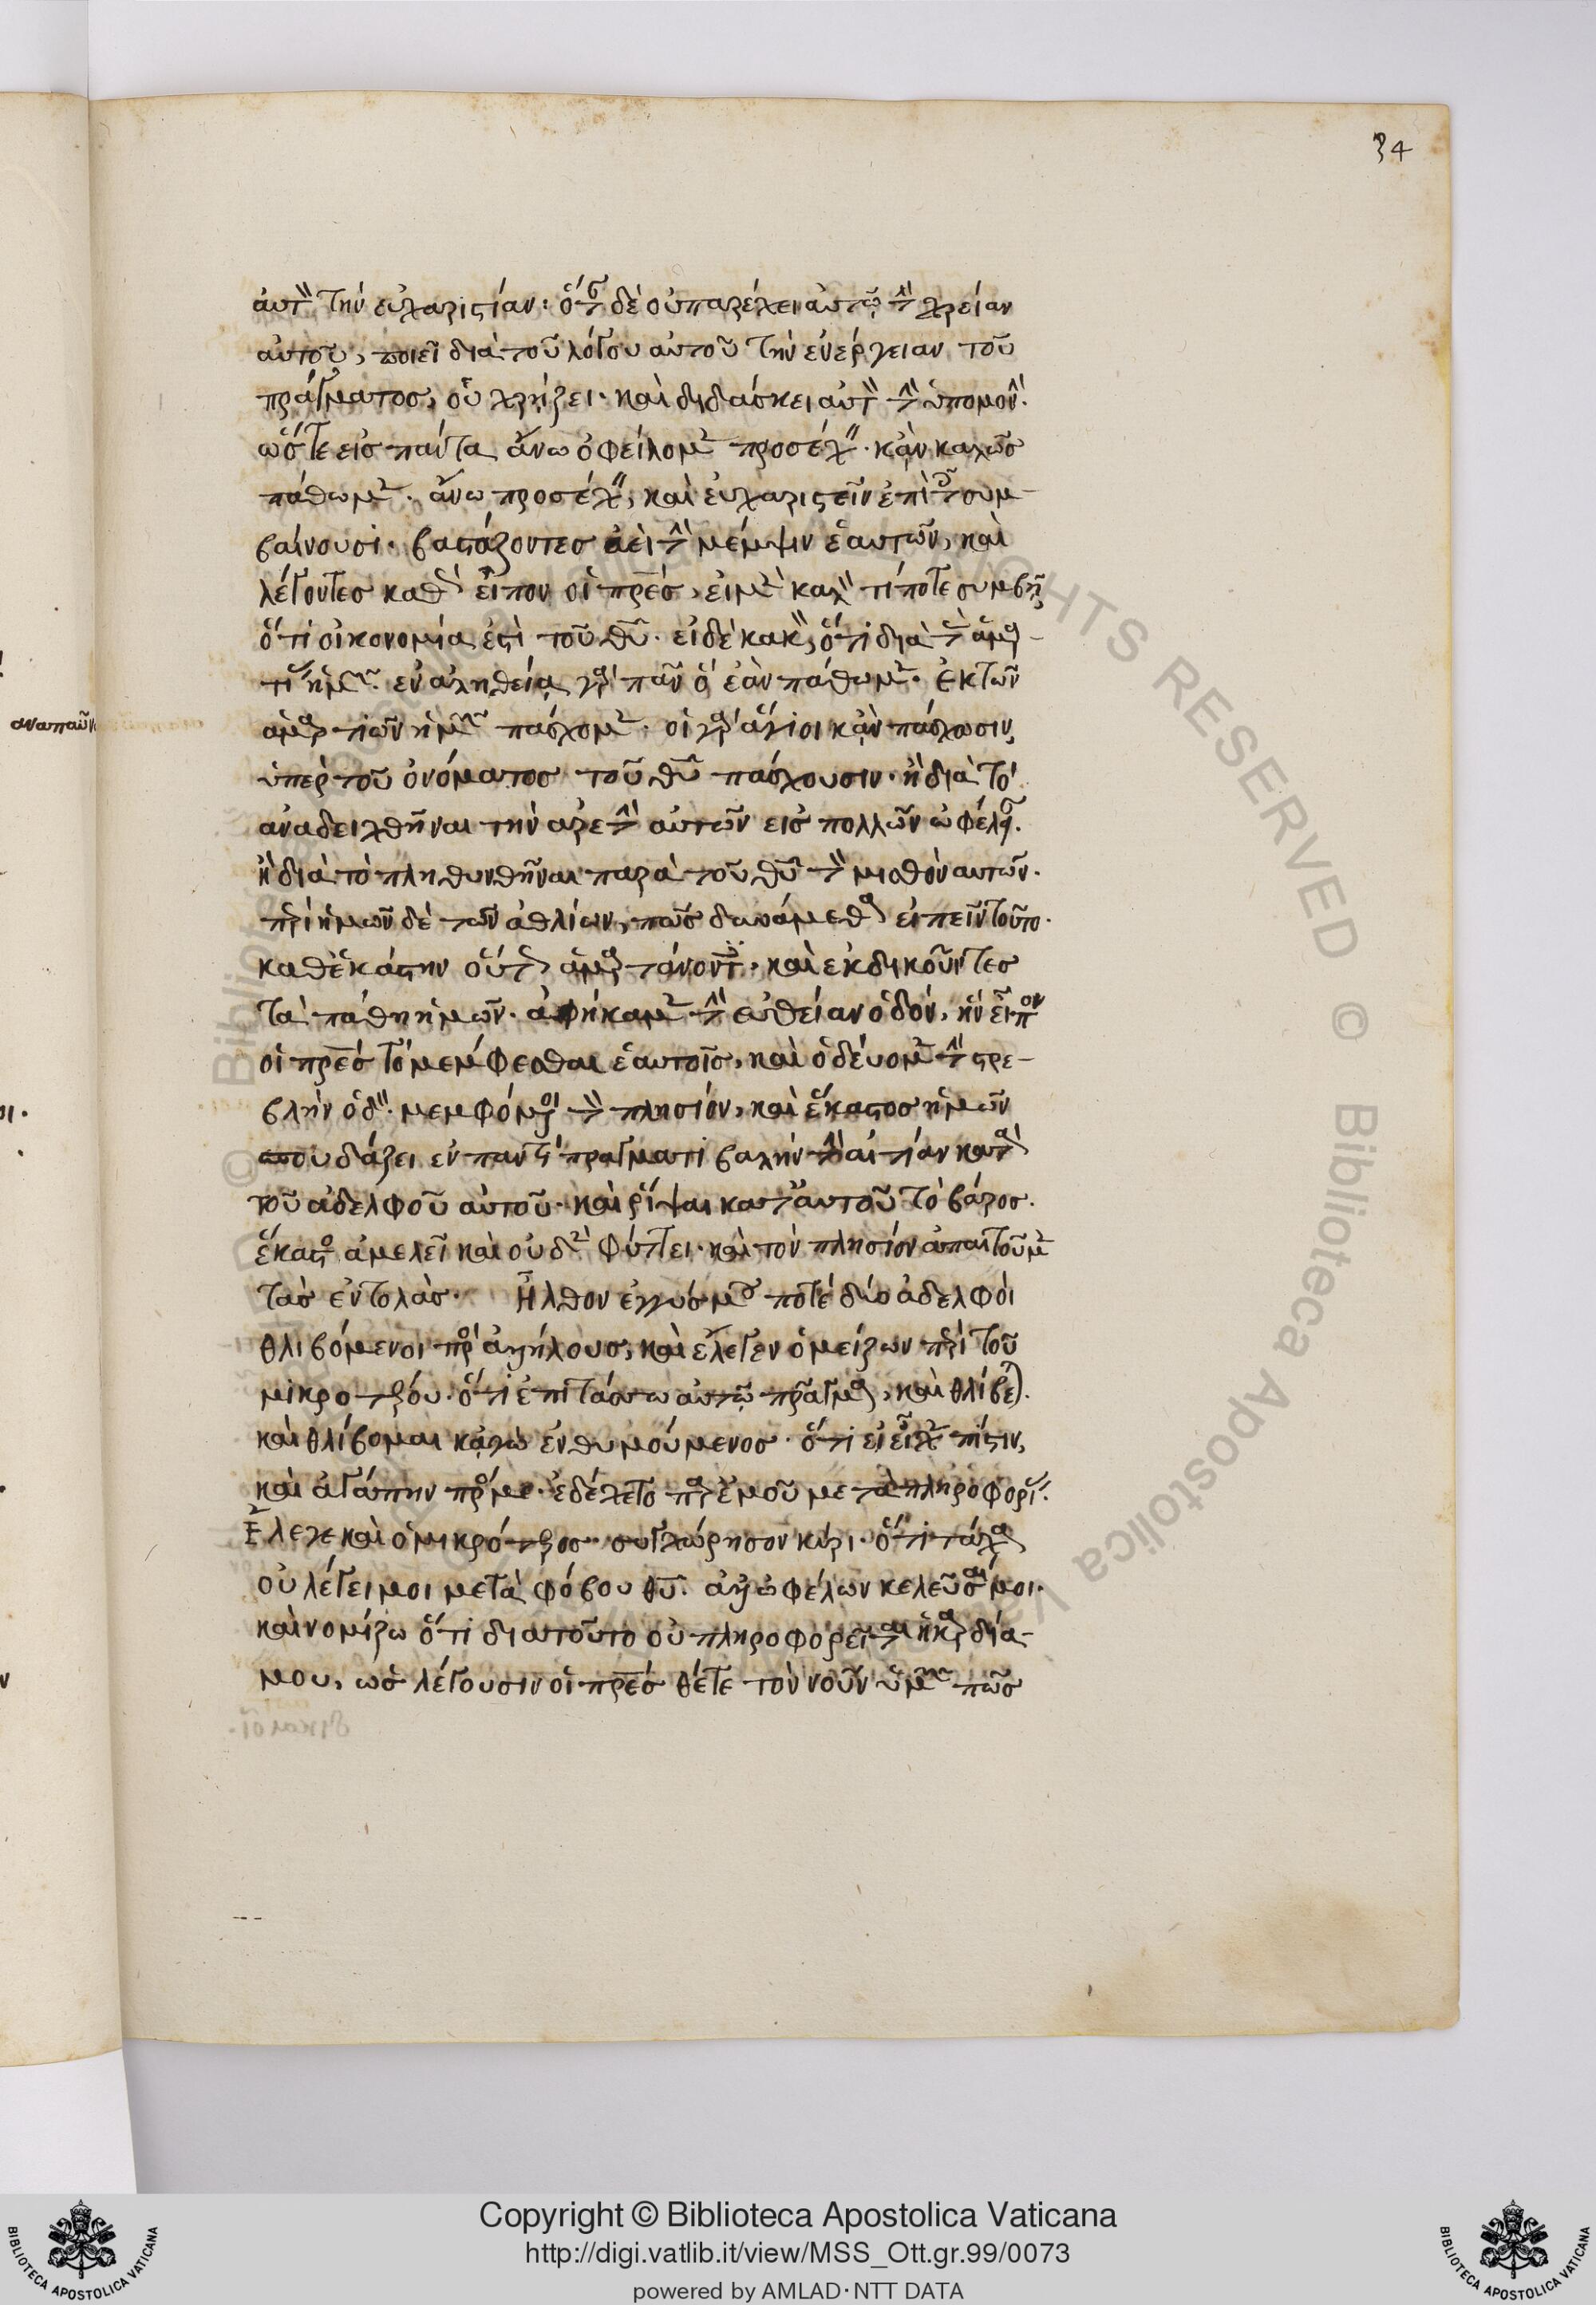 34
αὐτὸν τὴν εὐχαριστίαν· ὅτε δὲ οὐ παρέχει αὐτῷ τὴν χρείαν
αὐτοῦ, ποιεῖ διὰ τοῦ λόγου αὐτοῦ τὴν ἐνέργειαν τοῦ
πράγματος, οὗ χρήζει· καὶ διδάσκει αὐτὸν τὴν ὑπομονήν·
ὥστε εἰς πάντα ἄνω ὀφείλομεν προσέχειν· κἂν καλῶς
πάθωμεν· ἄνω προσέχειν, καὶ εὐχαριστεῖν ἐπὶ τοῖς συμ-
βαίνουσι· βαστάζοντες ἀεὶ τὴν μέμψιν ἑαυτῶν, καὶ
λέγοντες καθὰ εἶπον οἱ πρες, εἰ μὲν καλὸν τί ποτε συμβῇ
ὅτι οἰκονομία ἐστὶ τοῦ θυ· εἰ δὲ κακὸν, ὅτι διὰ τὰς ἁμαρ-
τίας ἡμῶν· ἐν ἀληθείᾳ γὰρ πᾶν ὃ ἐὰν πάθωμεν· ἐκ τῶν
ἁμαρτιῶν ἡμῶν πάσχομεν· οἱ γὰρ ἅγιοι κἂν πάσχωσιν,
ὑπὲρ τοῦ ὀνόματος τοῦ θυ πάσχουσιν· ἢ διὰ τὸ
ἀναδειχθῆναι τὴν ἀρετὴν αὐτῶν εἰς πολλῶν ὠφέλειαν·
ἢ διὰ τὸ πληθυνθῆναι παρὰ τοῦ θυ τὸν μισθὸν αὐτῶν·
περὶ ἡμῶν δὲ τῶν ἀθλίων, πῶς δυνάμεθα εἰπεῖν τοῦτο·
καθεκάστην οὕτως ἁμαρτάνοντες· καὶ ἐκδικοῦντες
τὰ πάθη ἡμῶν· ἀφήκαμεν τὴν εὐθεῖαν ὁδόν, ἣν εἶπον
οἱ πρες τὸ μέμφεσθαι ἑαυτοῖς, καὶ ὁδεύομεν τὴν στρε-
βλὴν ὁδὸν· μεμφόμενοι τὸν πλησίον, καὶ ἕκαστος ἡμῶν
σπουδάζει ἐν παντὶ πράγματι βαλεῖν τὴν αἰτίαν κατὰ
τοῦ ἀδελφοῦ αὐτοῦ· καὶ ῥίψαι κατ' αὐτοῦ τὸ βάρος·
ἕκαστος ἀμελεῖ καὶ οὐδὲν φυλάττει· καὶ τὸν πλησίον ἀπαιτοῦμεν
τὰς ἐντολάς· Ἦλθον ἐγγύς μου ποτὲ δύο ἀδελφοὶ
θλιβόμενοι πρὸς ἀλλήλους, καὶ ἔλεγεν ὁ μείζων περὶ τοῦ
μικροτέρου· ὅτι ἐπιτάσσω αὐτῷ πρᾶγμα, καὶ θλίβεται·
καὶ θλίβομαι κἀγὼ ἐνθυμούμενος· ὅτι εἰ εἶχε πίστιν,
καὶ ἀγάπην πρός με· ἐδέχετο παρ' ἐμοῦ μετὰ πληροφορίας·
Ἔλεγε καὶ ὁ μικρότερος· συγχώρησον κύρι· ὅτι τάχα
οὐ λέγει μοι μετὰ φόβου θυ· ἀλλ' ὡς θέλων κελεῦσαί μοι·
καὶ νομίζω ὅτι διατοῦτο οὐ πληροφορεῖται ἡ καρδία
μου, ὡς λέγουσιν οἱ πρες θέτε τὸν νοῦν ὑμῶν πῶς
Copyright © Biblioteca Apostolica Vaticana
http://digi.vatlib.it/view/MSS_Ott.gr.99/0073
powered by AMLAD·NTT DATA